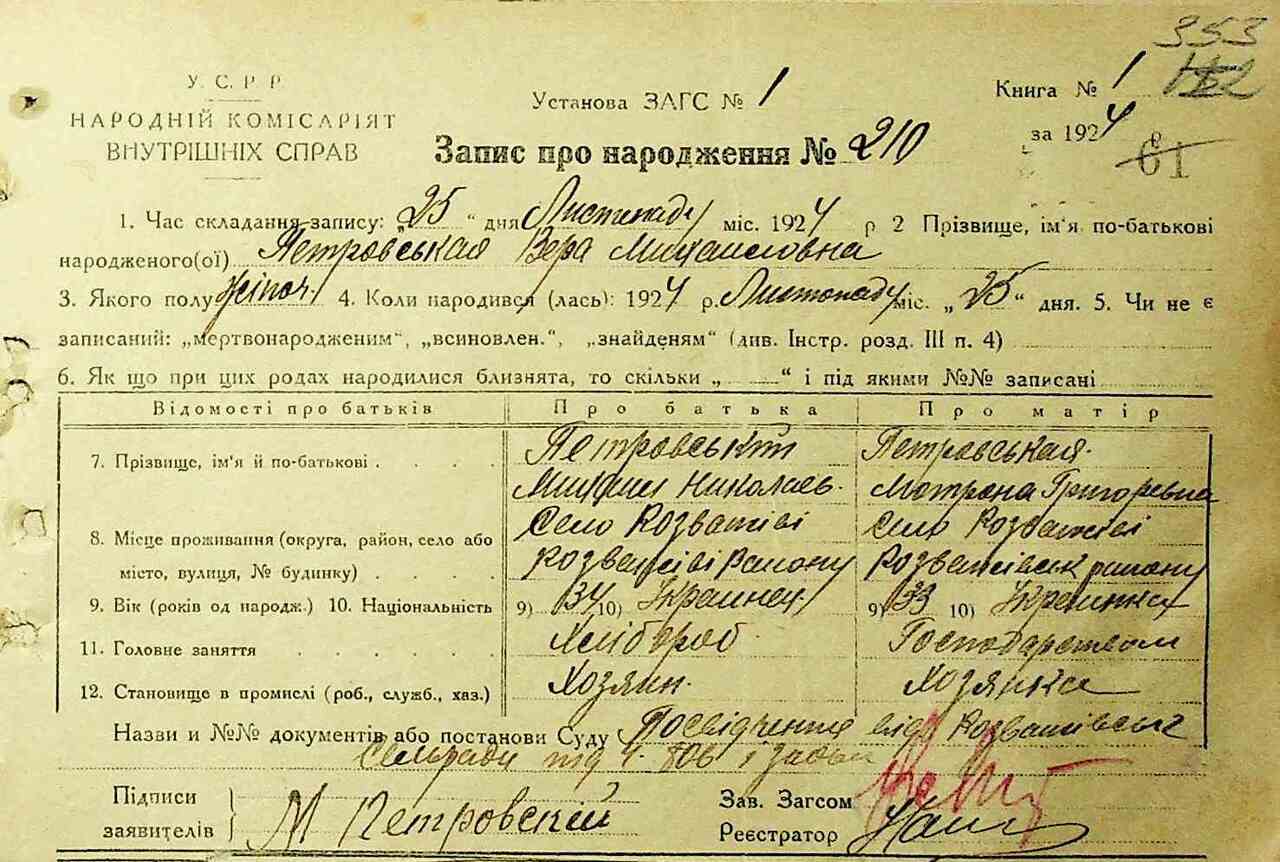 353
У. С. Р. Р.
Установа ЗАГС № 1
Книга № 1
НАРОДНІЙ КОМІСАРІЯТ
за 1924
ВНУТРІШНІХ СПРАВ
Запис про народження № 210
61
1. Час складання запису: „25“ дня Листопаду міс. 1924 р 2 Прізвище, ім'я по-батькові
народженого(ої) Петровськая Вера Михаиловна
3. Якого полу жіноч. 4. Коли народився (лась): 1924 р. Листопаду міс. „25“ дня. 5. Чи не є
записаний: „мертвонародженим“, „всиновлен.“, „знайденям“ (див. Інстр. розд. III п. 4)
6. Як що при цих родах народилися близнята, то скільки „ “ і під якими №№ записані
Відомості про батьків Про батька Про матір
7. Прізвище, ім'я й по-батькові Петровський Петровськая
Михаил Николаев. Мотрона Григоревна
Село Розважіві Село Розважіві
8. Місце проживання (округа, район, село або
місто, вулиця, № будинку) Розважіві Району Розважівськ району
9. Вік (років од народж.) 10. Національність 9) 34 10) Украинец 9) 33 10) Украинка
11. Головне заняття Хлібороб Господарством
12. Становище в промислі (роб., служб., хаз.) Хозяин. Хозянка
Назви и №№ документів або постанови Суду Посвідчення від Розважівськ
Сельради під ч.
Підписи
заявителів М Петровский
Зав. Загсом
Реєстратор